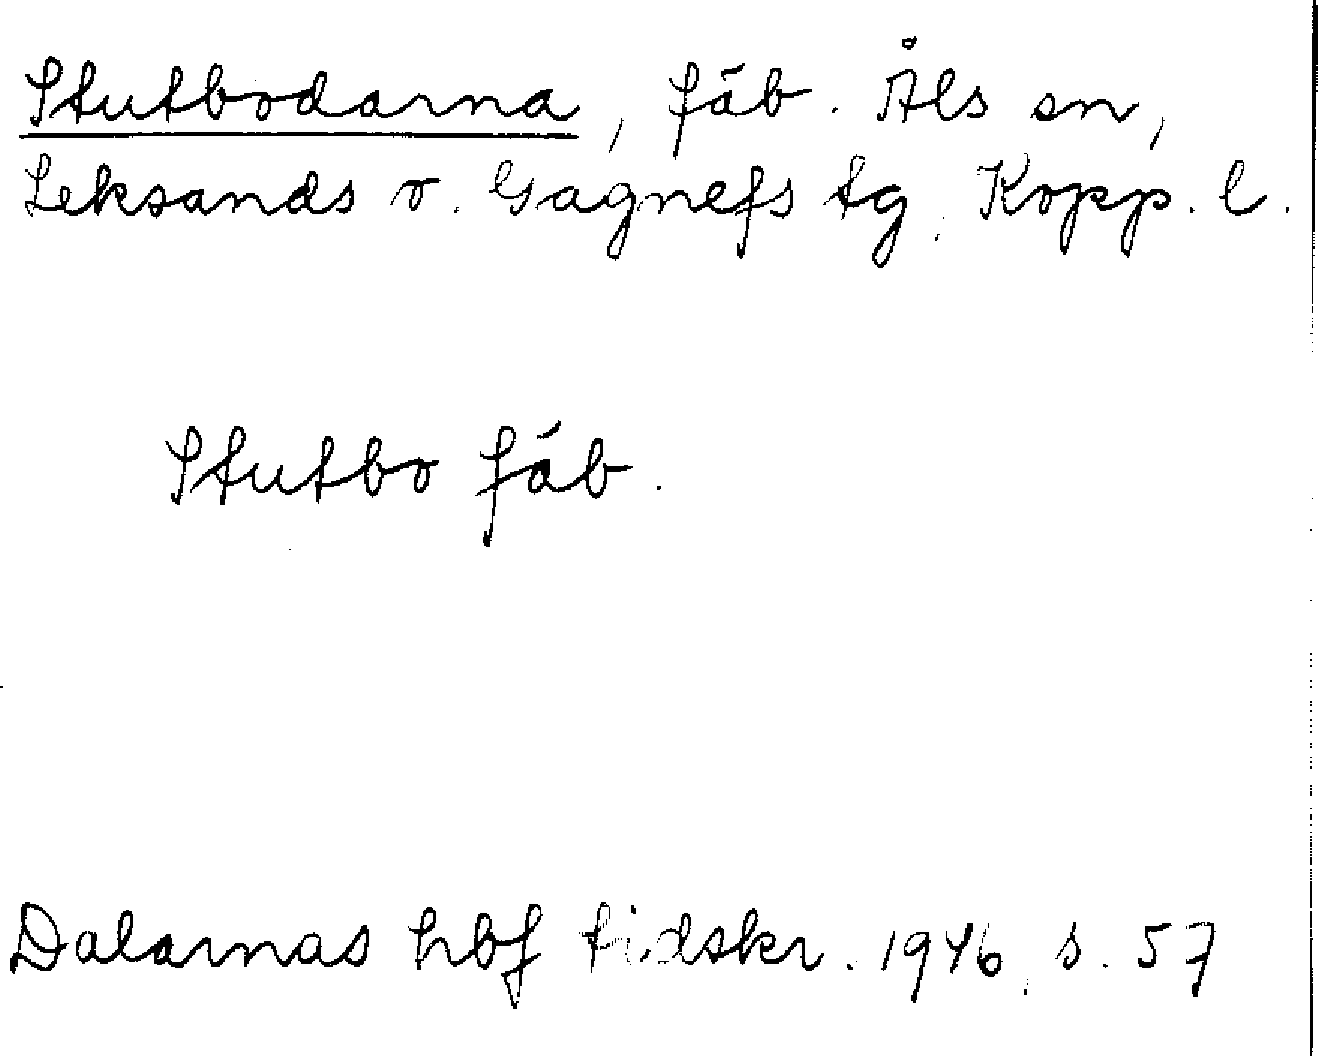 Stutbodarna, fäb. Åls sn,
Leksands o. Gagnefs tg, Kopp. l.
Stutbo fäb.
Dalarnas hbf tidskr. 1946, s. 57